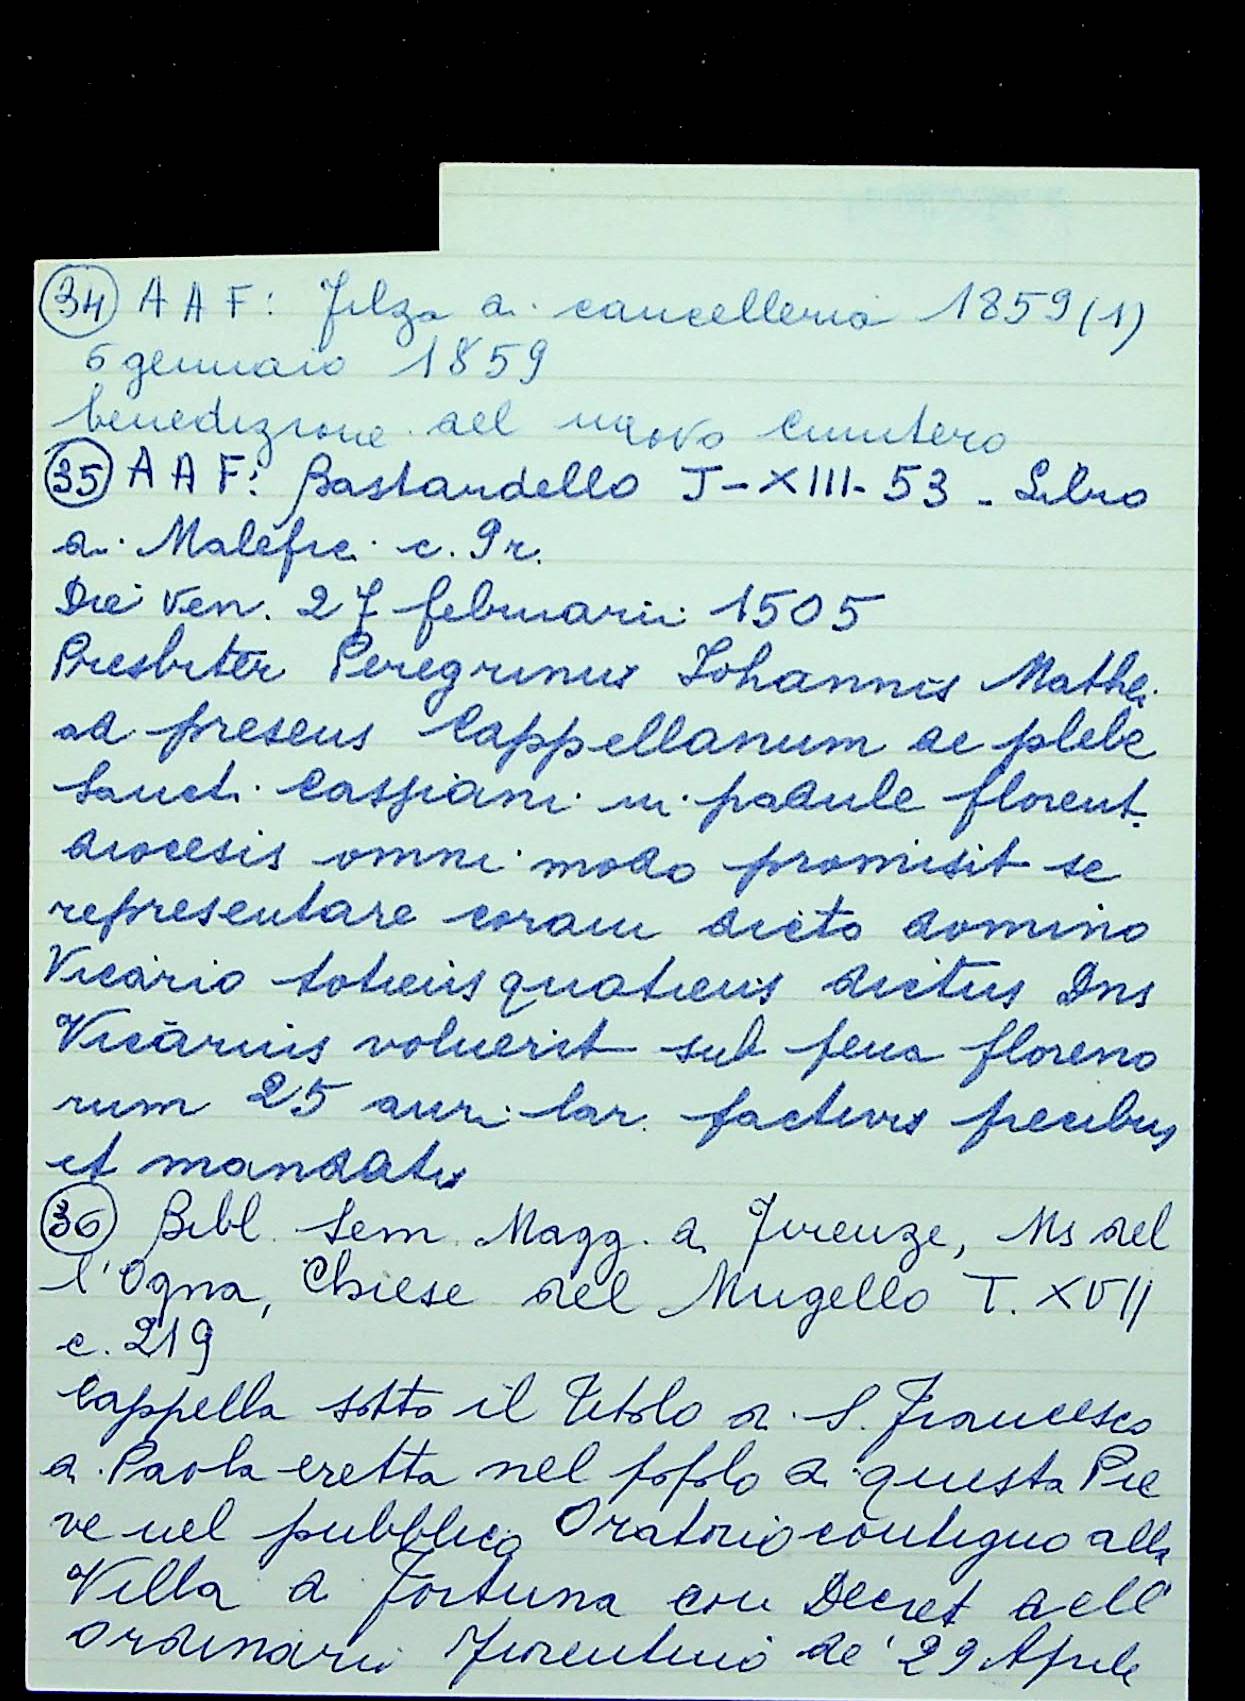 34 A A F: Filza di cancelleria 1859 (1)
6 gennaio 1859
benedizione del nuovo cimitero
35 A A F: Bastardello J-XIII-53 - Libro
di Malefici c. 9r.
Die Ven. 27 februarii 1505
Presbiter Peregrinus Johannis Mathei
ad presens Cappellanum de plebe
Sancti Cassiani in padule florent.
diocesis omni modo promisit se
representare coram dicto domino
Vicario totiens quotiens dictus Dns
Vicarius voluerit sub pena floreno
rum 25 auri lar. factivis precibus
et mandatis
36 Bibl. Sem. Magg. di Firenze, Ms del
l'Ogna, Chiese del Mugello T. XVII
c. 219
Cappella sotto il titolo di S. Francesco
di Paola eretta nel popolo di questa Pie
ve nel pubblico Oratorio contiguo alla
Villa di Fortuna con Decret dell'
Ordinario fiorentino de' 29 Aprile